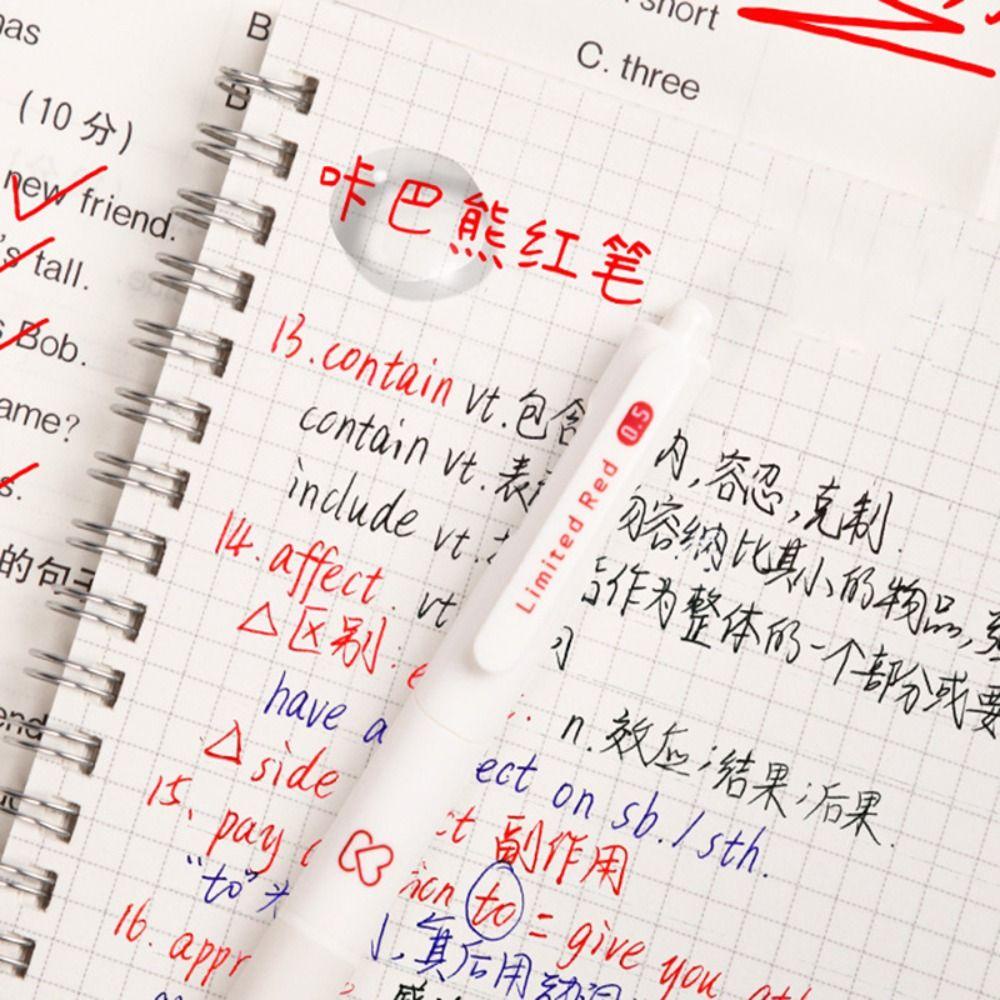 short
C. three
B
B
(10 分)
new friend.
's tall.
s Bob.
ame?
s.
的句子
end
咔巴熊红笔
13. contain vt. 包含 内, 容忍, 克制.
contain vt. 表 容纳比其小的物品,
include vt. 作为整体的一个部分或要
14. affect. vt
△区别: n. 效应; 结果; 后果.
have a ect on sb. / sth.
△ side ct 副作用
15. pay ion to = give you
"to" 其后用动词
16. appr
Limited Red 0.5